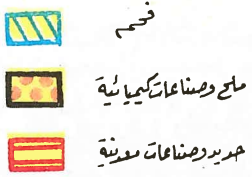 فحم
ملح وصناعات كيميائية
حديد وصناعات معدنية